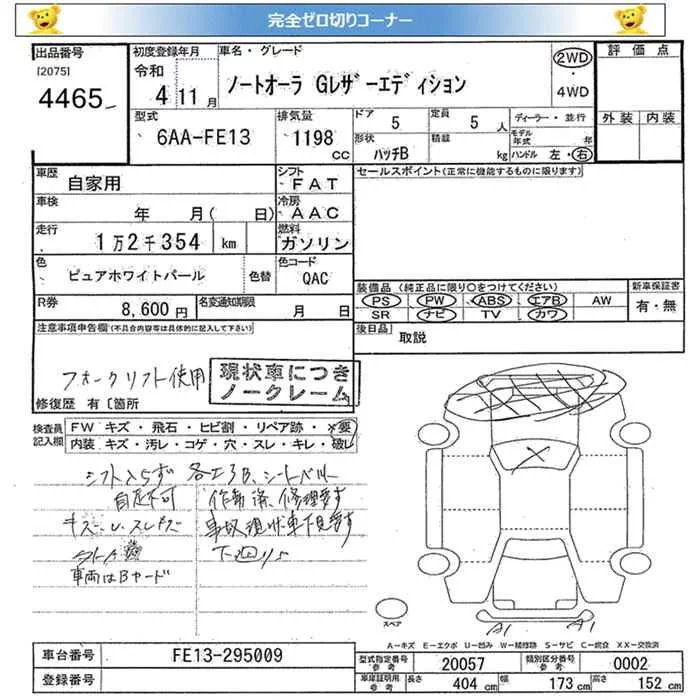 完全ゼロ切りコーナー
出品番号
[2075]
4465
初度登録年月
令和
4 11 月
車名・グレード
ノートオーラ Gレザーエディション
2WD
4WD
評価点
外装 内装
型式
6AA-FE13
排気量
1198 CC
ドア 5
定員 5 人
形状 ハッチB
積載 kg
ディーラー・並行
モデル年式 年
ハンドル 左・右
車歴
自家用
シフト
FAT
セールスポイント(正常に機能するものに限ります)
車検
年 月( 日)
冷房
AAC
走行
1万2千354 km
燃料
ガソリン
色
ピュアホワイトパール
色替
色コード
QAC
装備品 (純正品に限り○をつけてください)
新車保証書
PS PW ABS エアB AW
SR ナビ TV カワ
有・無
R券
8,600 円
名変通知期限
月 日
後日品
取説
注意事項申告欄(不具合内容等は具体的に記入して下さい)
フォークリフト使用
現状車につき
ノークレーム
修復歴 有〔箇所
検査員記入欄
FW キズ・飛石・ヒビ割・リペア跡・×要
内装 キズ・汚レ・コゲ・穴・スレ・キレ・破レ
シフト入らず 各エアB、シートベルト
自走不可 作動済、修理要す
キズ・U、スレキズ 事故現状車下見要す
下廻りS
車両はBヤード
スペア
A1 A1
A=キズ E=エクボ U=凹み W=補修跡 S=サビ C=腐食 XX=交換済
車台番号
FE13-295009
登録番号
型式指定番号 参考
20057
類別区分番号 参考
0002
車庫証明用 参考
長さ 404 cm
幅 173 cm
高さ 152 cm